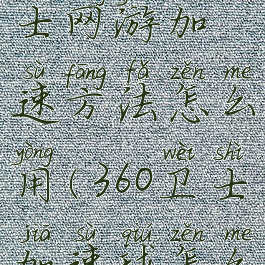 士网游加
sù fāng fǎ zěn me
速方法怎么
yòng wèi shì
用(360卫士
jiā sù qiú zěn me
加速球怎么